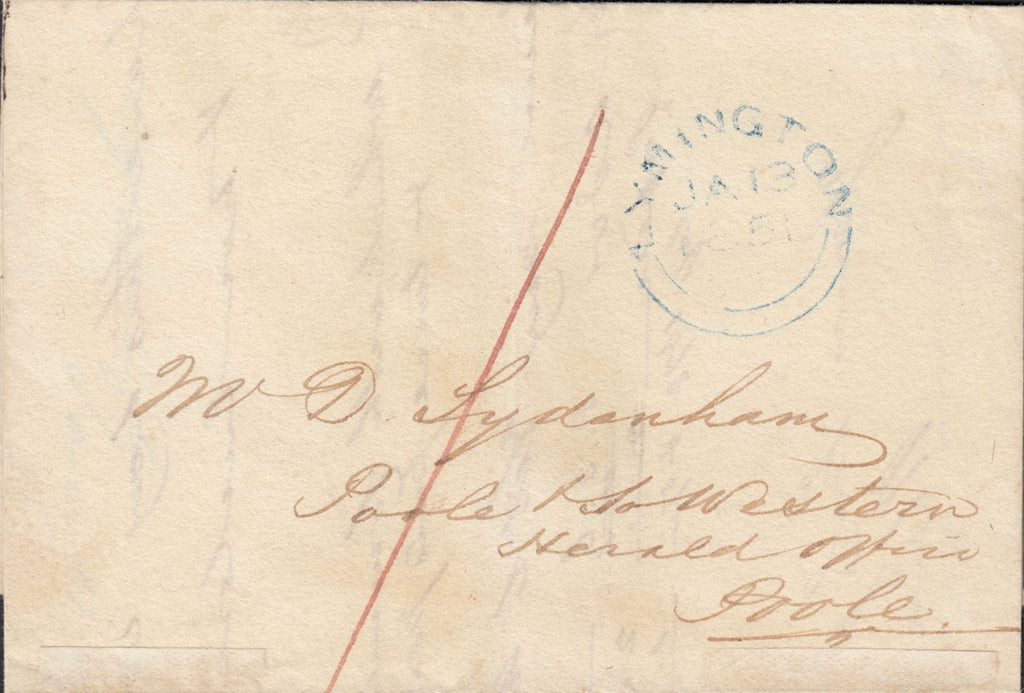 LYMINGTON
JA 13
1851
Mr D. Sydenham
Poole & So Western
Herald Office
Poole.